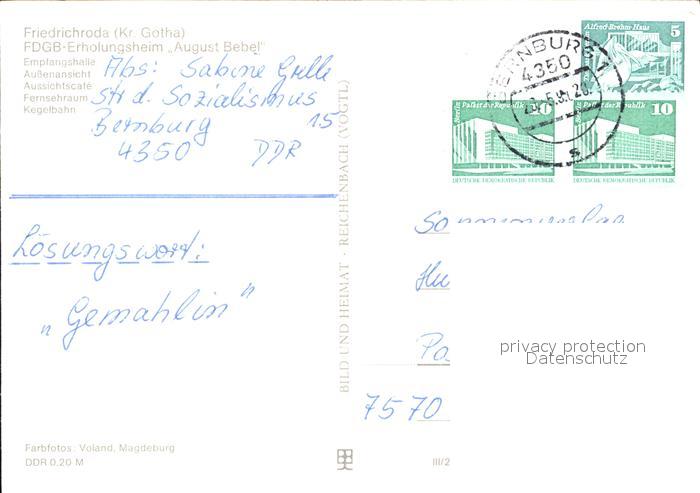 Friedrichroda (Kr. Gotha)
FDGB-Erholungsheim „August Bebel"
Empfangshalle
Außenansicht
Aussichtscafé
Fernsehraum
Kegelbahn
Abs: Sabine Grelle
Str d. Sozialismus
15
Bernburg
4350 DDR
Lösungswort:
„Gemahlin"
Farbfotos: Voland, Magdeburg
DDR 0,20 M
BILD UND HEIMAT · REICHENBACH (VOGTL)
III/2
BERNBURG 1
4350
Alfred-Brehm-Haus
5
Berlin Palast der Republik 10
DEUTSCHE DEMOKRATISCHE REPUBLIK
Berlin Palast der Republik 10
DEUTSCHE DEMOKRATISCHE REPUBLIK
Hu
Pa
7570
privacy protection
Datenschutz